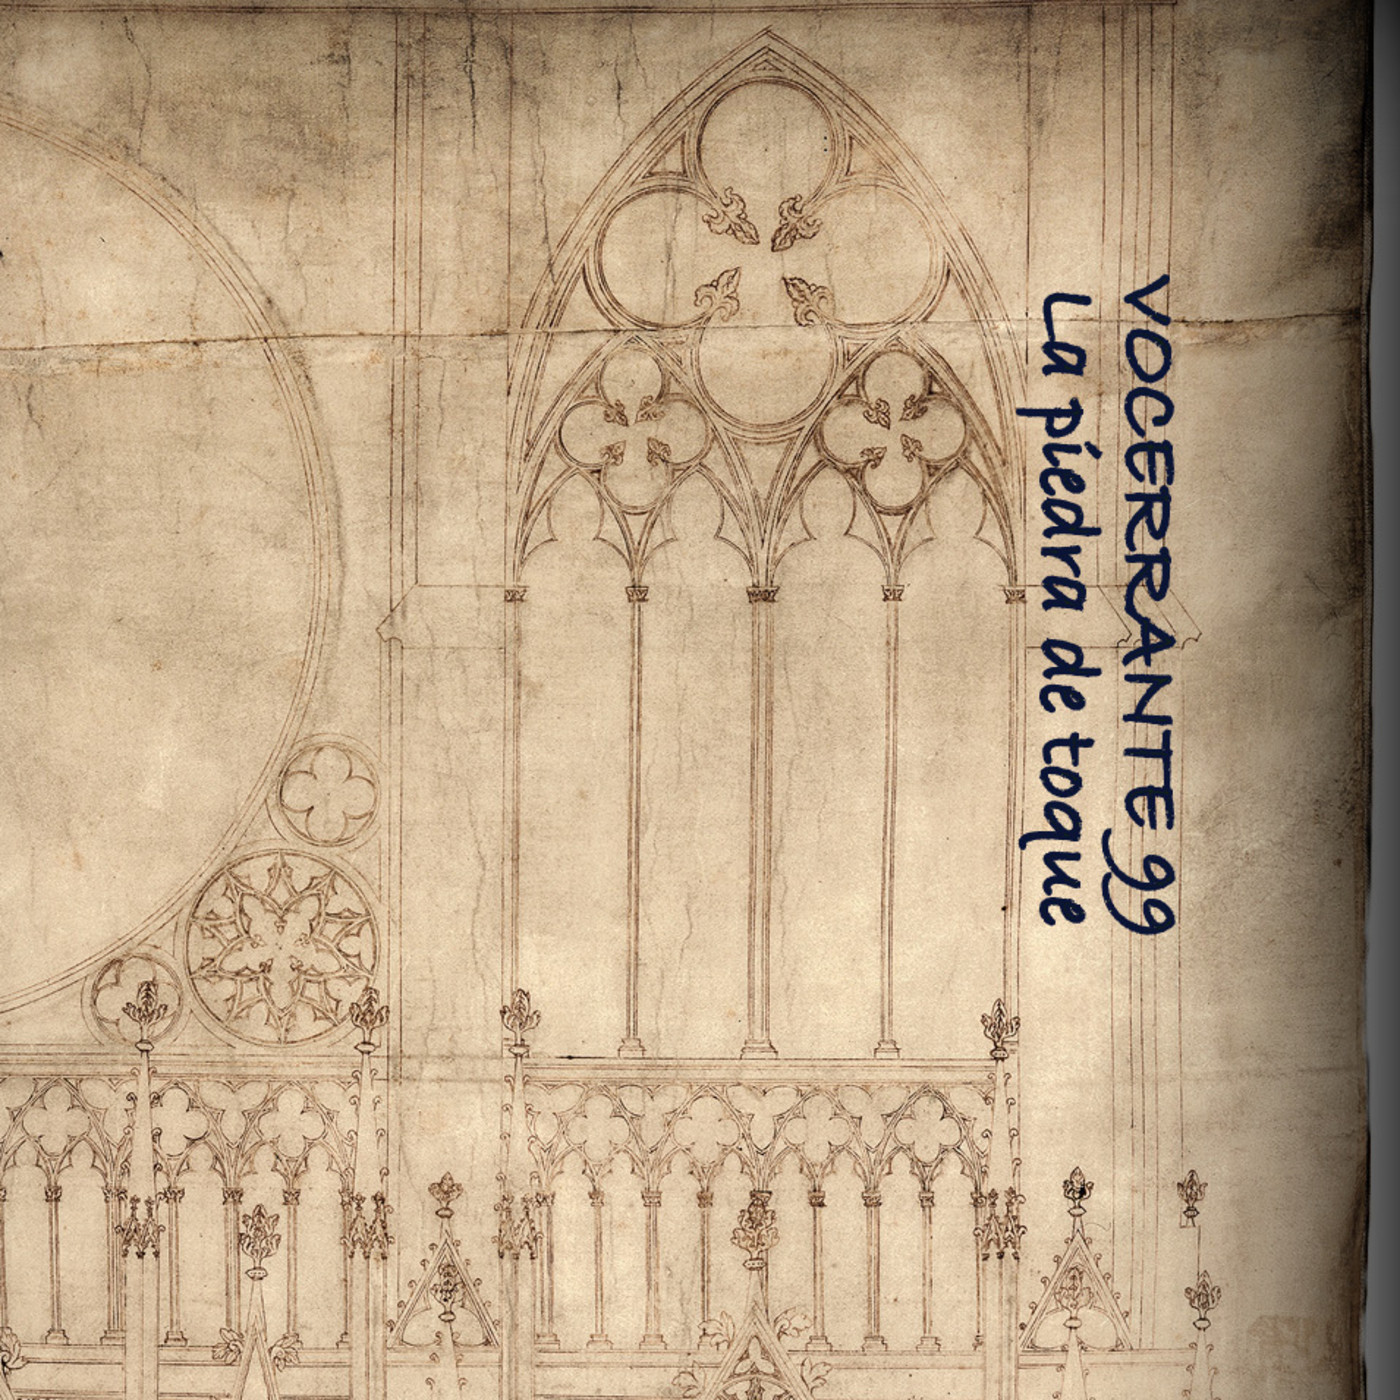 VOCERRANTE 99
La piedra de toque